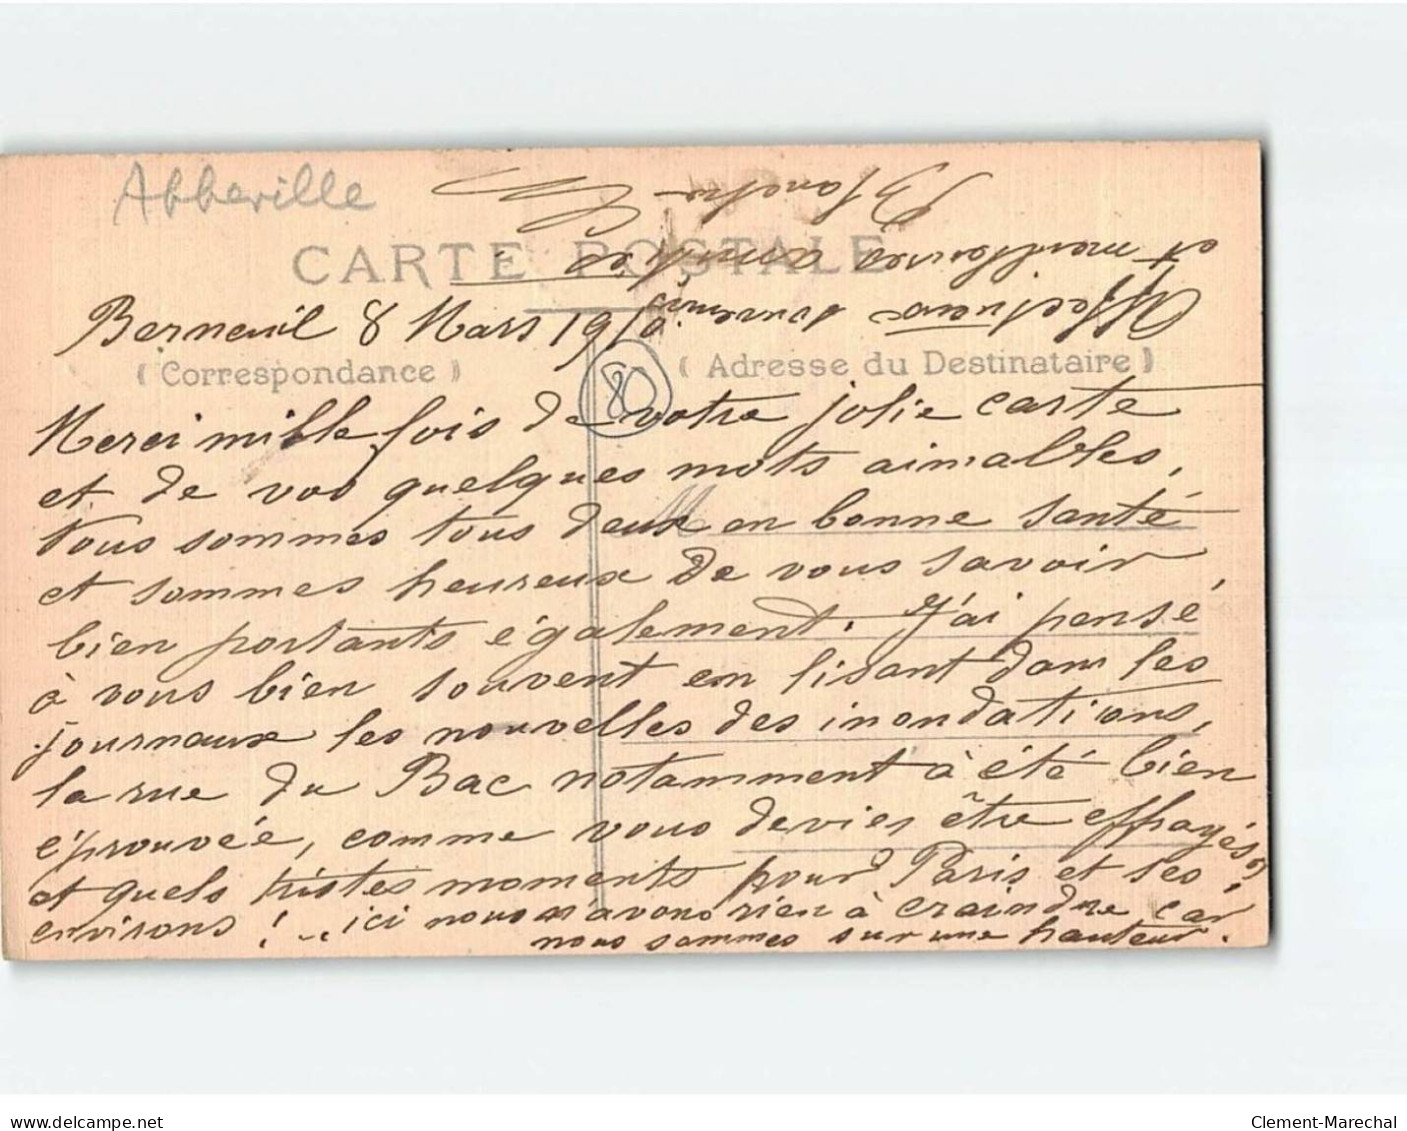 Abbeville
CARTE POSTALE
Berneuil 8 Mars 1910.
( Correspondance )
( Adresse du Destinataire )
80
Merci mille fois de votre jolie carte
et de vos quelques mots aimables,
Nous sommes tous deux en bonne santé
et sommes heureux de vous savoir
bien portants également. J'ai pensé
à vous bien souvent en lisant dans les
journaux les nouvelles des inondations,
la rue du Bac notamment à été bien
éprouvée, comme vous deviez être effrayés ?
et quels tristes moments pour Paris et ses
environs ! ... ici nous n'avons rien à craindre car
nous sommes sur une hauteur.
Affectueux souvenirs
et meilleures amitiés
Blanche
delcampe.net
Clement-Marechal